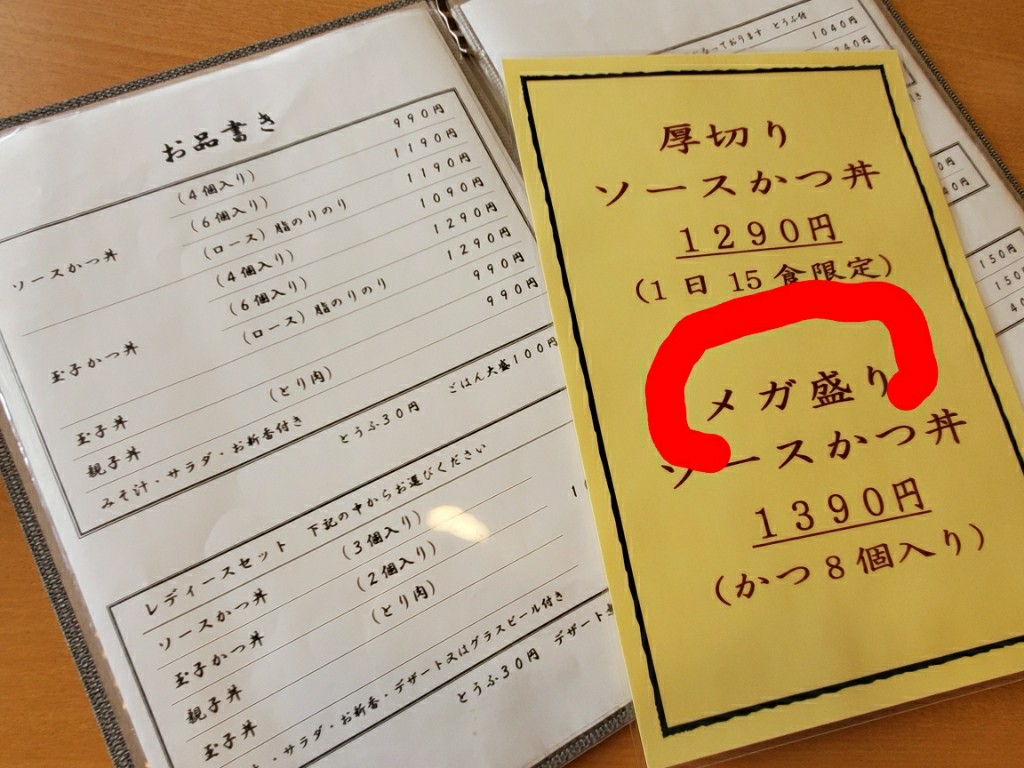 お品書き
ソースかつ丼
(4個入り) 990円
(6個入り) 1190円
(ロース) 脂のりのり 1190円
玉子かつ丼
(4個入り) 1090円
(6個入り) 1290円
(ロース) 脂のりのり 1290円
玉子丼 990円
親子丼 (とり肉) 990円
みそ汁・サラダ・お新香付き とうふ30円 ごはん大盛100円
レディースセット 下記の中からお選びください
ソースかつ丼 (3個入り)
玉子かつ丼 (2個入り)
親子丼 (とり肉)
玉子丼
・サラダ・お新香・デザート又はグラスビール付き
とうふ30円 デザート
なっております とうふ付
1040円
150円
厚切り
ソースかつ丼
1290円
(1日15食限定)
メガ盛り
ソースかつ丼
1390円
(かつ8個入り)